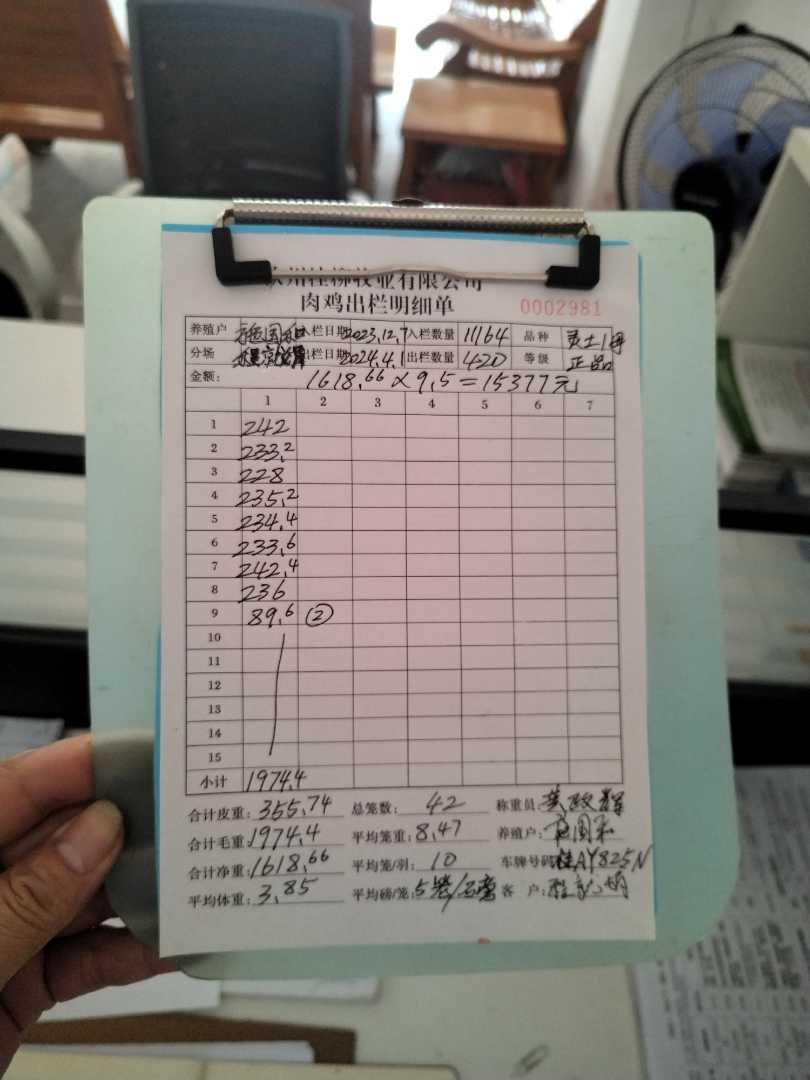 桂柳牧业有限公司
肉鸡出栏明细单 0002981
养殖户 入栏日期 2023.12.7 入栏数量 11164 品种
分场 出栏日期 2024.4.1 出栏数量 420 等级 正品
金额: 1618.66 × 9.5 = 15377元
1 2 3 4 5 6 7
1 242
2 233.2
3 228
4 235.2
5 234.4
6 233.6
7 242.4
8 236
9 89.6 ②
10
11
12
13
14
15
小计 1974.4
合计皮重: 355.74 总笼数: 42 称重员:
合计毛重: 1974.4 平均笼重: 8.47 养殖户:
合计净重: 1618.66 平均笼/羽: 10 车牌号码: 桂AY825N
平均体重: 3.85 平均磅/笼: 5 客 户: